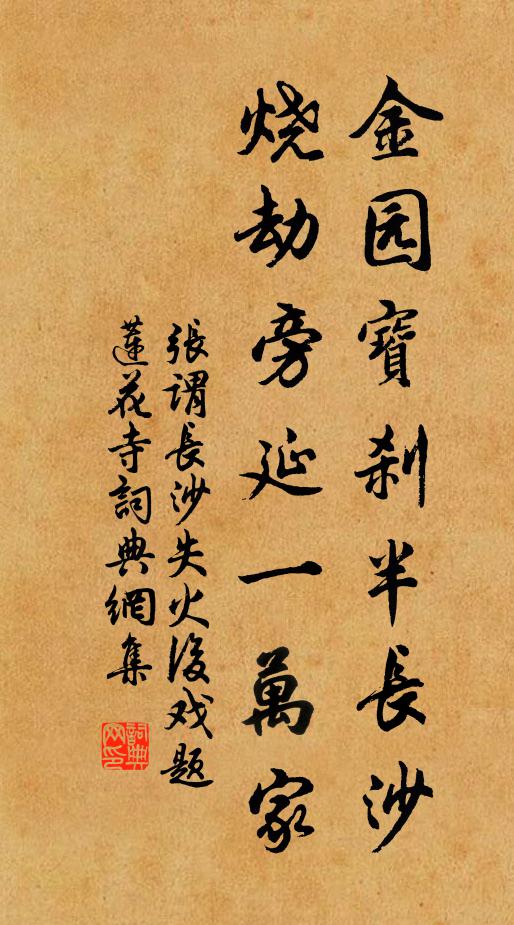 金园寶刹半長沙
烧劫旁延一萬家
張謂長沙失火後戏題
蓮花寺詞典網集
詞典
网印